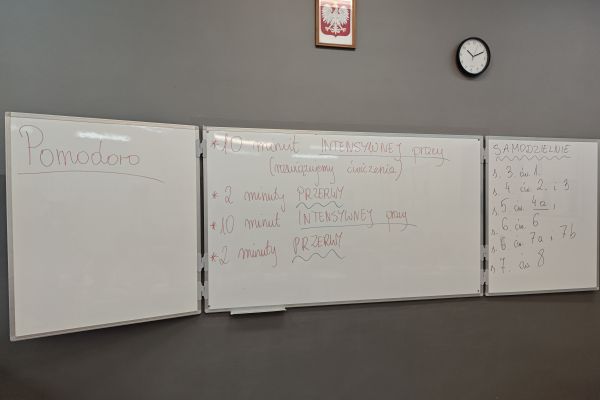 Pomodoro
* 10 minut INTENSYWNEJ pracy
(rozwiązujemy ćwiczenia)
* 2 minuty PRZERWY
* 10 minut INTENSYWNEJ pracy
* 2 minuty PRZERWY
SAMODZIELNIE
s. 3. ćw. 1.
s. 4 ćw. 2. i 3
s. 5 ćw. 4a,
s. 6 ćw. 6
s. 6 ćw. 7a + 7b
s. 7. ćw. 8